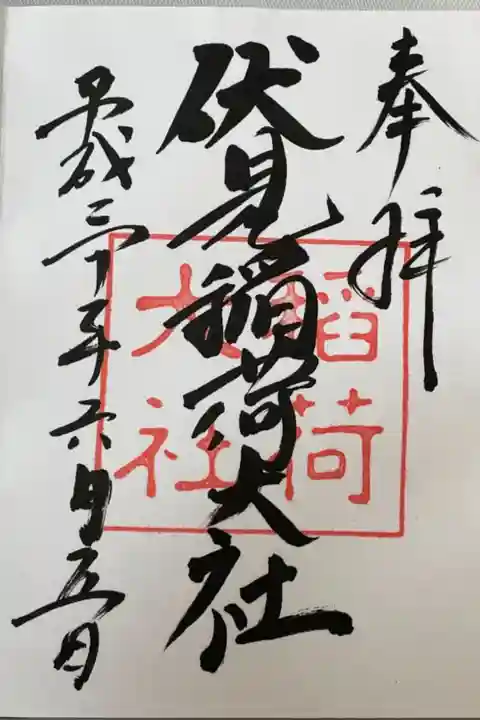 奉拝
伏見稲荷大社
稲荷
大社
平成三十年六月五日